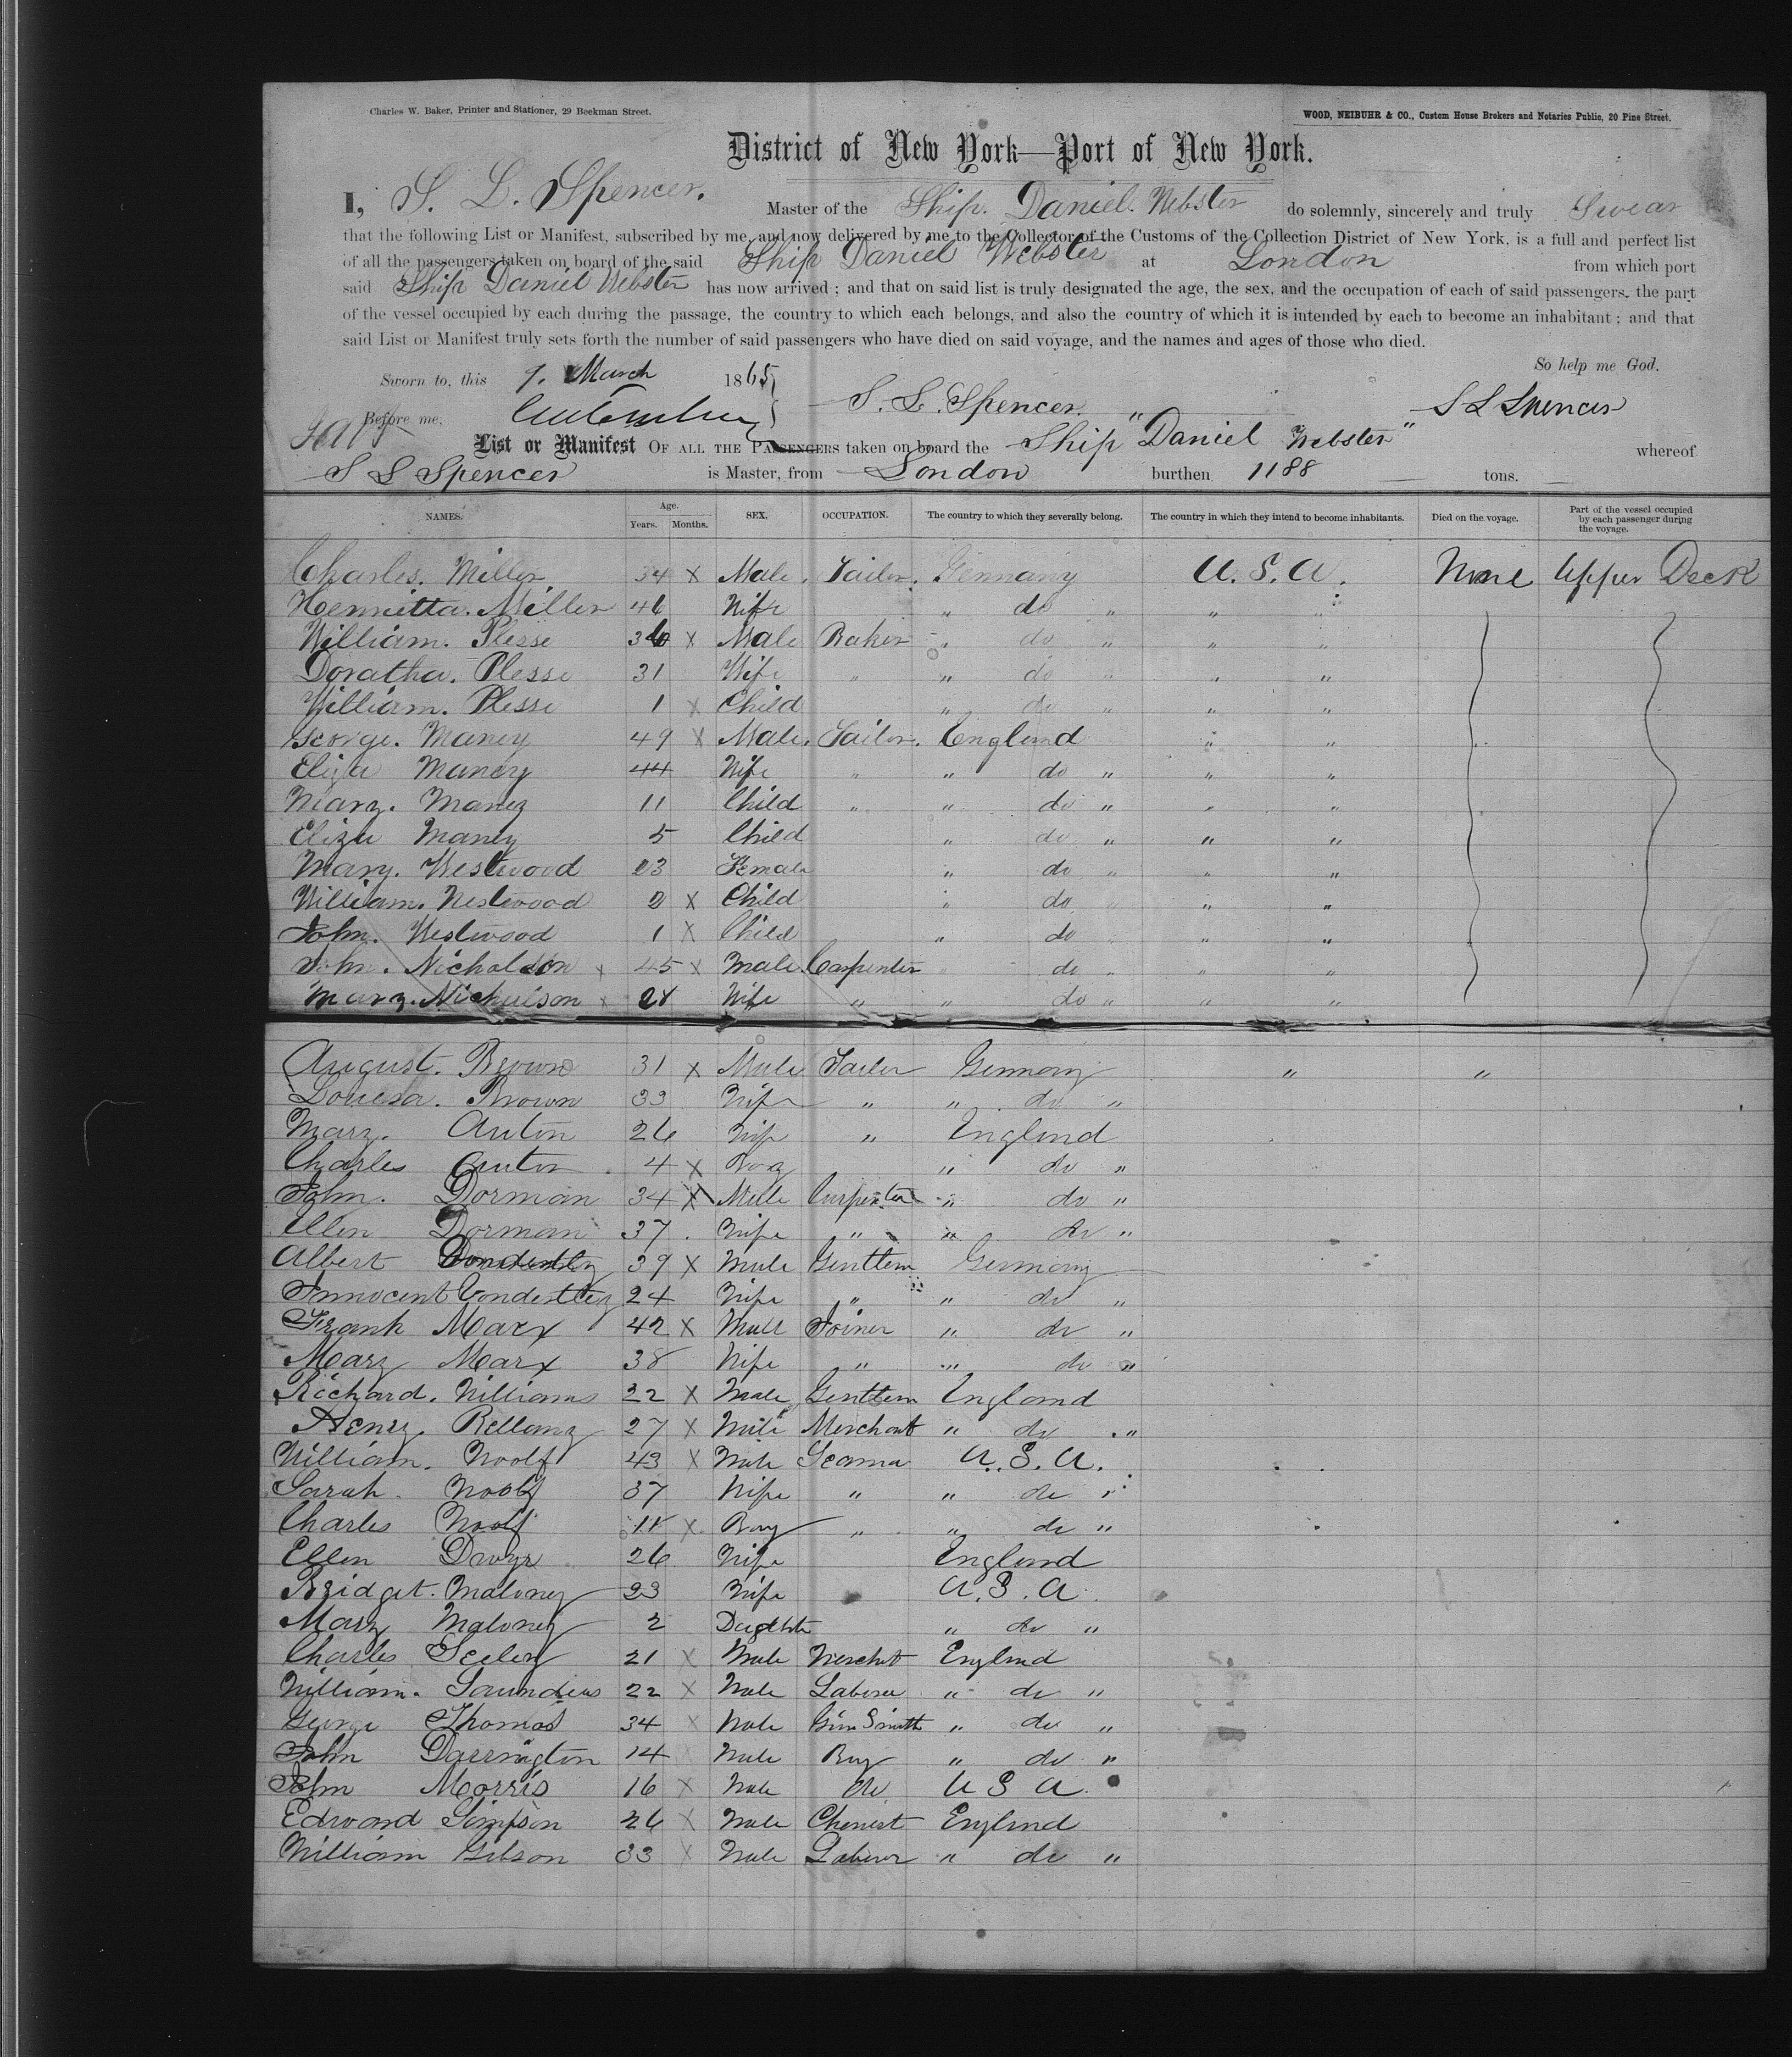 Charles W. Baker, Printer and Stationer, 29 Beekman Street.
WOOD, NEIBUHR & CO., Custom House Brokers and Notaries Public, 20 Pine Street.
District of New York—Port of New York.
I, S. L. Spencer. Master of the Ship. Daniel. Webster do solemnly, sincerely and truly Swear
that the following List or Manifest, subscribed by me, and now delivered by me to the Collector of the Customs of the Collection District of New York, is a full and perfect list
of all the passengers taken on board of the said Ship Daniel Webster at London from which port
said Ship Daniel Webster has now arrived; and that on said list is truly designated the age, the sex, and the occupation of each of said passengers, the part
of the vessel occupied by each during the passage, the country to which each belongs, and also the country of which it is intended by each to become an inhabitant; and that
said List or Manifest truly sets forth the number of said passengers who have died on said voyage, and the names and ages of those who died.
So help me God.
Sworn to, this 9. March 1865
S. L. Spencer. S L Spencer
Before me,
List or Manifest OF ALL THE PASSENGERS taken on board the Ship "Daniel Webster" whereof
S L Spencer is Master, from London burthen 1188 tons.
NAMES. Age. Years. Months. SEX. OCCUPATION. The country to which they severally belong. The country in which they intend to become inhabitants. Died on the voyage. Part of the vessel occupied by each passenger during the voyage.
Charles. Miller 34 x Male. Tailor. Germany U. S. A. None Upper Deck
Henrietta. Miller 46 Wife " do " " "
William. Plesse 36 x Male Baker " do " " "
Doratha. Plesse 31 Wife " " do " " "
William. Plesse 1 x Child " do " " "
George. Maney 49 x Male. Tailor. England " "
Eliza Maney 44 Wife " " do " " "
Mary. Maney 11 Child " " do " " "
Eliza Maney 5 Child " do " " "
Mary. Westwood 23 Female " do " " "
William. Westwood 2 x Child " do " " "
John. Westwood 1 x Child " do " " "
John. Nicholson x 45 x Male. Carpenter " do " " "
Mary. Nicholson x 28 Wife " " do " " "
August. Brown 31 x Male Tailor Germany " "
Louesa. Brown 33 Wife " " do "
Mary. Auton 26 Wife " England
Charles Auton 4 x Boy " do "
John. Dorman 34 x Male Carpenter " do "
Ellen Dorman 37. Wife " " do "
Albert 39 x Male Gentlem Germany
Innocent 24 Wife " " do "
Frank Marx 42 x Male Joiner " do "
Mary Marx 38 Wife " " do "
Richard. Williams 22 x Male Gentlem England
Henry. Bellamy 27 x Male Merchant " do "
William. Woolf 43 x Male Seaman U. S. A.
Sarah. Woolf 37 Wife " " do "
Charles Woolf 11 x Boy " " do "
Ellen Dwyr 26 Wife England
Bridget. Maloney 23 Wife U. S. A.
Mary Maloney 2 Daghter " do "
Charles Seeley 21 x Male Merchat England
William. Saunders 22 x Male Laborer " do "
George Thomas 34 x Male Gun Smith " do "
John Darrington 14 Male Boy " do "
John Morris 16 x Male do U S A.
Edward Simpson 26 x Male Chemist England
William Gibson 33 x Male Laborer " do "